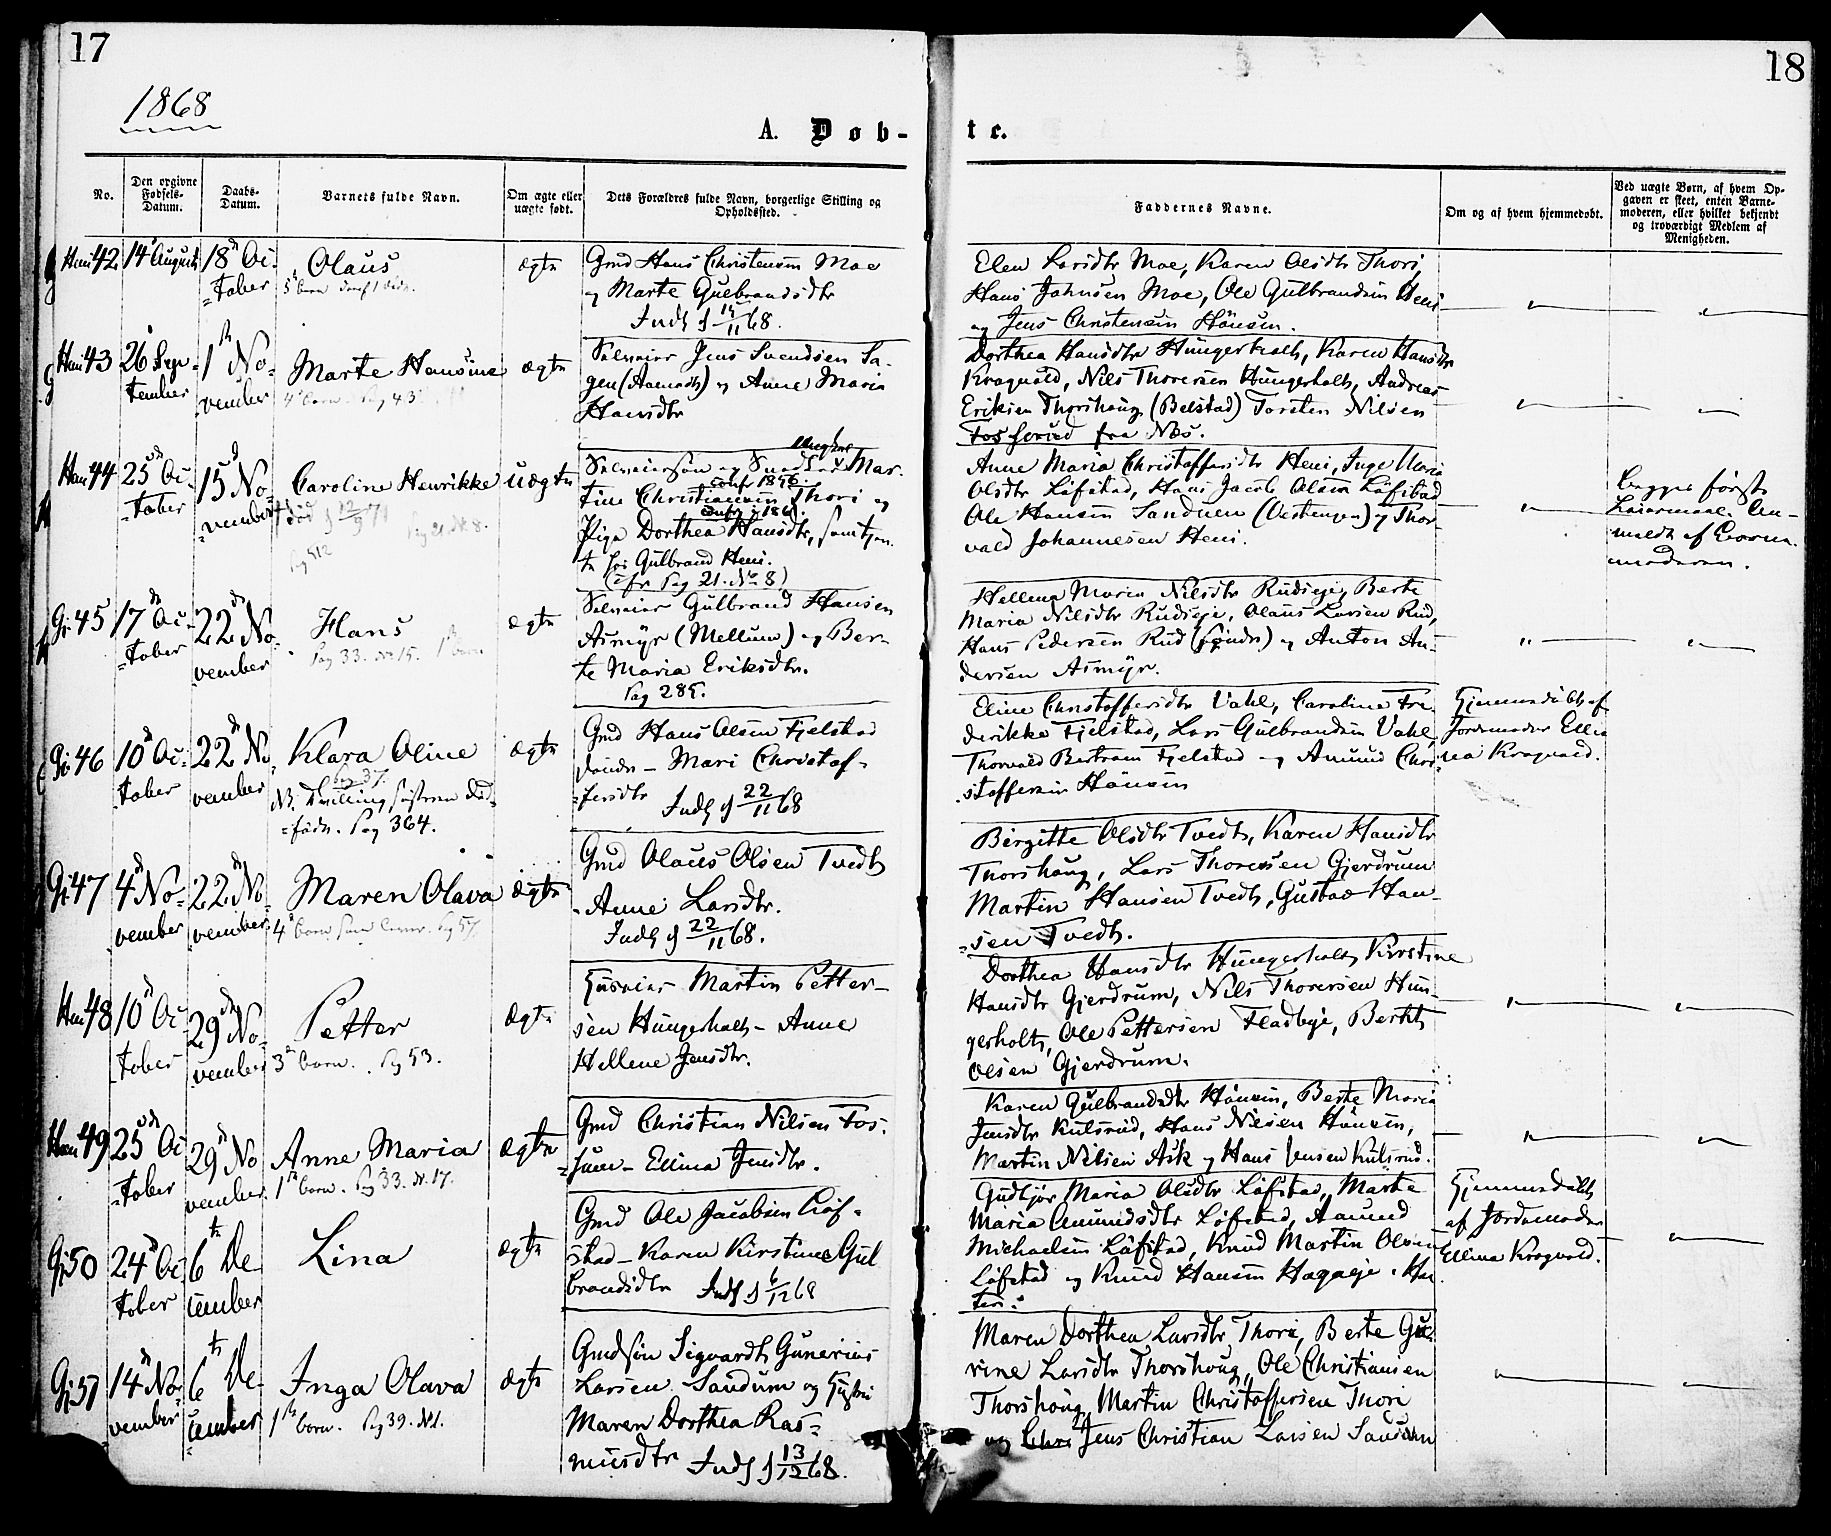 17
18
1868
A. Døb-
te.
No.
Den opgivne Fødsels-Datum.
Daabs-Datum.
Varnets fulde Navn.
Om ægte eller uægte født.
Dets Forældres fulde Navn, borgerlige Stilling og Opholdssted.
Faddernes Navne.
Om og af hvem hjemmedøbt.
Ved uægte Børn, af hvem Op-
gaven er skeet, enten Barne-
moderen, eller hvilket bekjendt
og troværdigt Medlem af
Menigheden.
42 14 August 18 Oc-
=tober
Olaus
ægte
Gmd Hans Christensen Moe
og Marte Gulbrandsdtr
68.
Elen Larsdtr Moe, Karen Olsdtr Thori,
Hans Johnsen Moe, Ole Gulbrandsen Heni
og Jens Christensen Hönsen.
43 26 Sep-
tember
1 No-
vember
Marte Hansine
4 barn. Pag 43
ægte
Selveier Jens Svendsen Sa-
gen (Aamodt) og Anne Maria
Hansdtr
Dorthea Hansdtr Hungerholt, Karen Hansdtr
Kragvold, Nils Thoresen Hungerholt, Andreas
Eriksen Thorshoug (Belstad) Torsten Nilsen
fra Næs.
44 25 Oc-
=tober
15 No-
=vember
Caroline Henrikke
uægte
Selveiersøn og Mar-
tin Christiansen Thori og
Pige Dorthea Hansdtr,
Gulbrand Heni.
(cfr Pag 21. No 8)
Anne Maria Christoffersdtr Heni, Inge Maria
Olsdtr Löfstad, Hans Jacob Olsen Löfstad
Ole Hansen Sanduen (Vestengen) og Thor
vald Johannesen Heni.
Begges første
Leiermaal. An-
meldt af Barne
moderen.
45 17 Oc-
=tober
22 No-
vember
Hans
Pag 33. No 15.
ægte
Selveier Gulbrand Hansen
Asmyr (Mellum) og Ber-
te Maria Eriksdtr.
Pag 285.
Hellena Maria Nilsdtr Rudseje, Berte
Maria Nilsdtr Rudseje, Olaus Larsen Rud,
Hans Pedersen Rud (söndr) og Anton An-
dersen Asmyr.
46 10 Oc-
tober
22 No-
vember
Klara Oline
Pag 37.
NB. Tvilling søsteren død-
=født. Pag 364.
ægte
Gmd Hans Olsen Fjelstad
söndr - Mari Christof-
=fersdtr
22/11 68
Eline Christoffersdtr Vahl, Caroline Fre-
derikke Fjelstad, Lars Gulbrandsen Vahl,
Thorvald Bertram Fjelstad og Amund Chri-
stoffersen Hönsen
Hjemmedøbt af
Jordemoder Elli-
na Kragvold.
47 4 No-
vember
22 No-
vember
Maren Olava
4 barn Pag 57.
ægte
Gmd Olaus Olsen Tvedt
- Anne Larsdtr.
22/11 68.
Birgitte Olsdtr Tvedt, Karen Hansdtr
Thorshaug, Lars Thoresen Gjerdrum
Martin Hansen Tvedt, Gustav Han-
=sen Tvedt.
48 10 Oc-
tober
29 No-
vember
Petter
3 barn. Pag 53.
ægte
Husmand Martin Petter-
sen Hungerholt - Anne
Hellene Jensdtr.
Dorthea Hansdtr Hungerholt, Kirstine
Hansdtr Gjerdrum, Nils Thoresen Hun-
gerholt, Ole Pettersen Fladbye, Bertel
Olsen Gjerdrum.
49 25 Oc-
=tober
29 No-
vember
Anne Maria
1 barn. Pag 33. No 17.
ægte
Gmd Christian Nilsen Fos-
sum - Ellina Jensdtr.
Karen Gulbrandsdtr Hönsen, Berte Maria
Jensdtr Kulsrud, Hans Nilsen Hönsen,
Martin Nilsen Ask og Hans Jensen Kulsrud.
50 24 Oc-
tober
6 De-
cember
Lina
ægte
Gmd Ole Jacobsen Löf-
stad - Karen Kirstine Gul
brandsdtr 6/12 68
Gudbjør Maria Olsdtr Löfstad, Marte
Maria Amundsdtr Löfstad, Aamund
Michaelsen Löfstad, Knud Martin Olsen
Löfstad og Knud Hansen
Hjemmedøbt
af Jordemoder
Ellina Kragvold.
51 14 No-
vember
6 De-
cember
Inga Olava
1 barn. Pag 39. No 1.
ægte
Gmdsøn Sigvardt Gunerius
Larsen Sandum og Hustru
Maren Dorthea Ras-
musdtr 13/12 68.
Maren Dorthea Larsdtr Thori, Berte Gu-
rine Larsdtr Thorshoug, Ole Christiansen
Thorshoug, Martin Christoffersen Thori
og Jens Christian Larsen Sandum